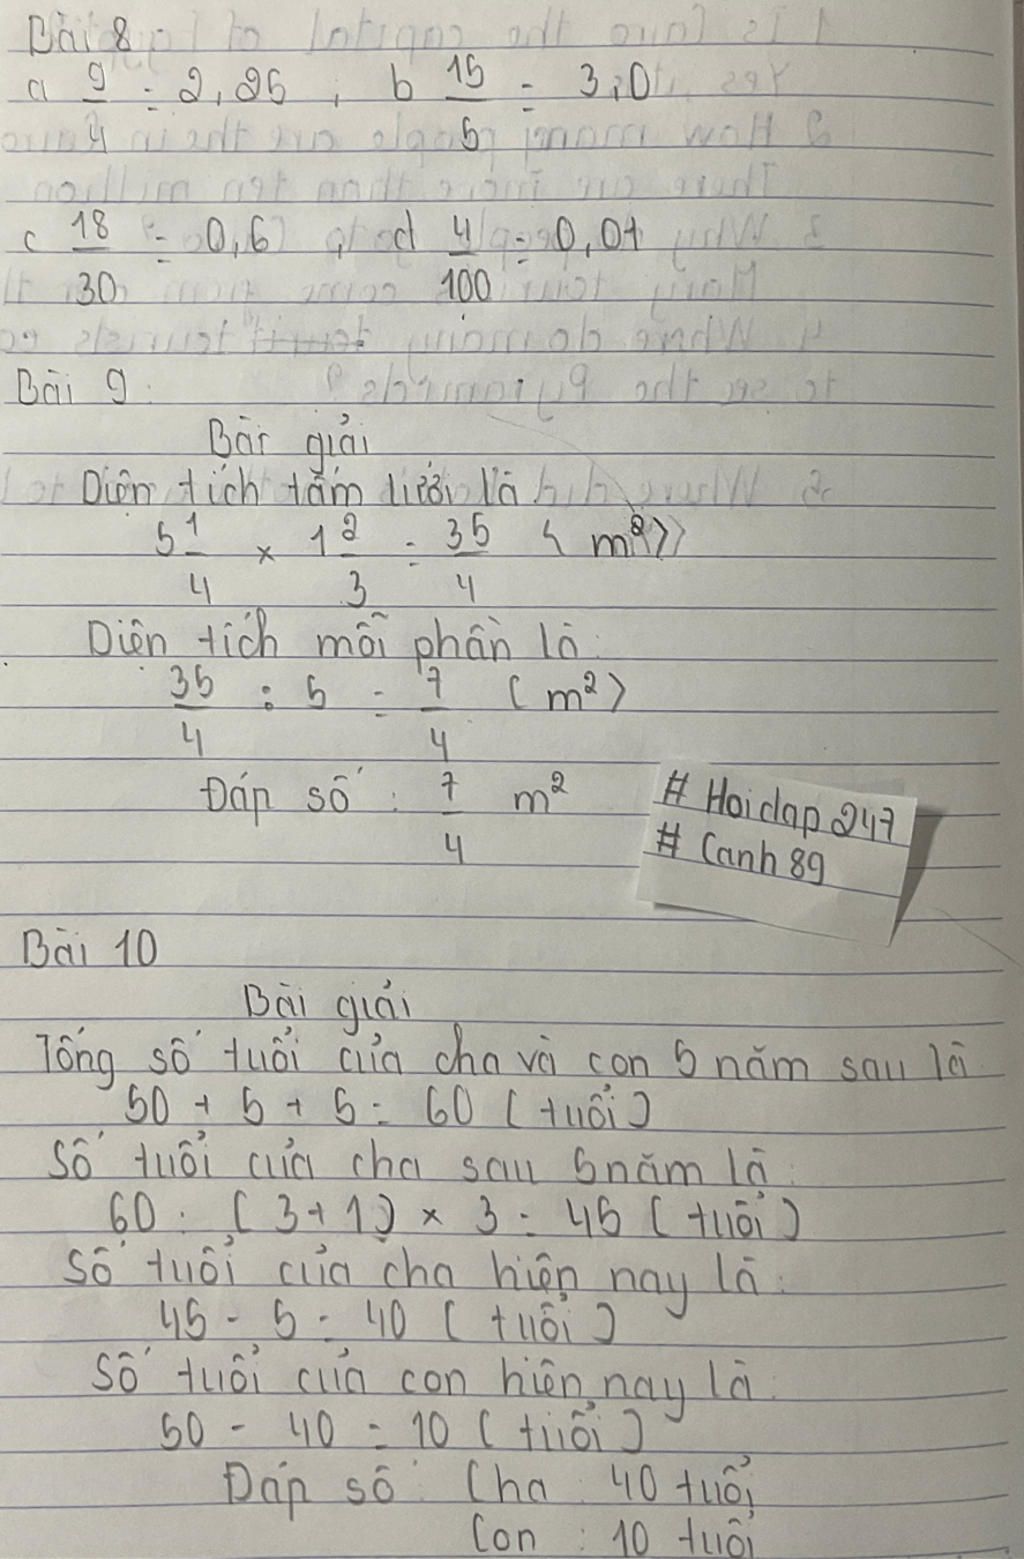 Bài 8
a 9/4 = 2,25 , b 15/5 = 3,0
c 18/30 = 0,6 , d 4/100 = 0,04
Bài 9:
Bài giải
Diện tích tấm lưới là
5 1/4 × 1 2/3 = 35/4 ( m²)
Diện tích mỗi phần là:
35/4 : 5 = 7/4 ( m²)
Đáp số : 7/4 m²
# Hoidap 247
# Canh 89
Bài 10
Bài giải
Tổng số tuổi của cha và con 5 năm sau là
50 + 5 + 5 = 60 ( tuổi )
Số tuổi của cha sau 5 năm là:
60 : ( 3+1 ) × 3 = 45 ( tuổi )
Số tuổi của cha hiện nay là:
45 - 5 = 40 ( tuổi )
Số tuổi của con hiện nay là:
50 - 40 = 10 ( tuổi )
Đáp số : Cha : 40 tuổi
Con : 10 tuổi